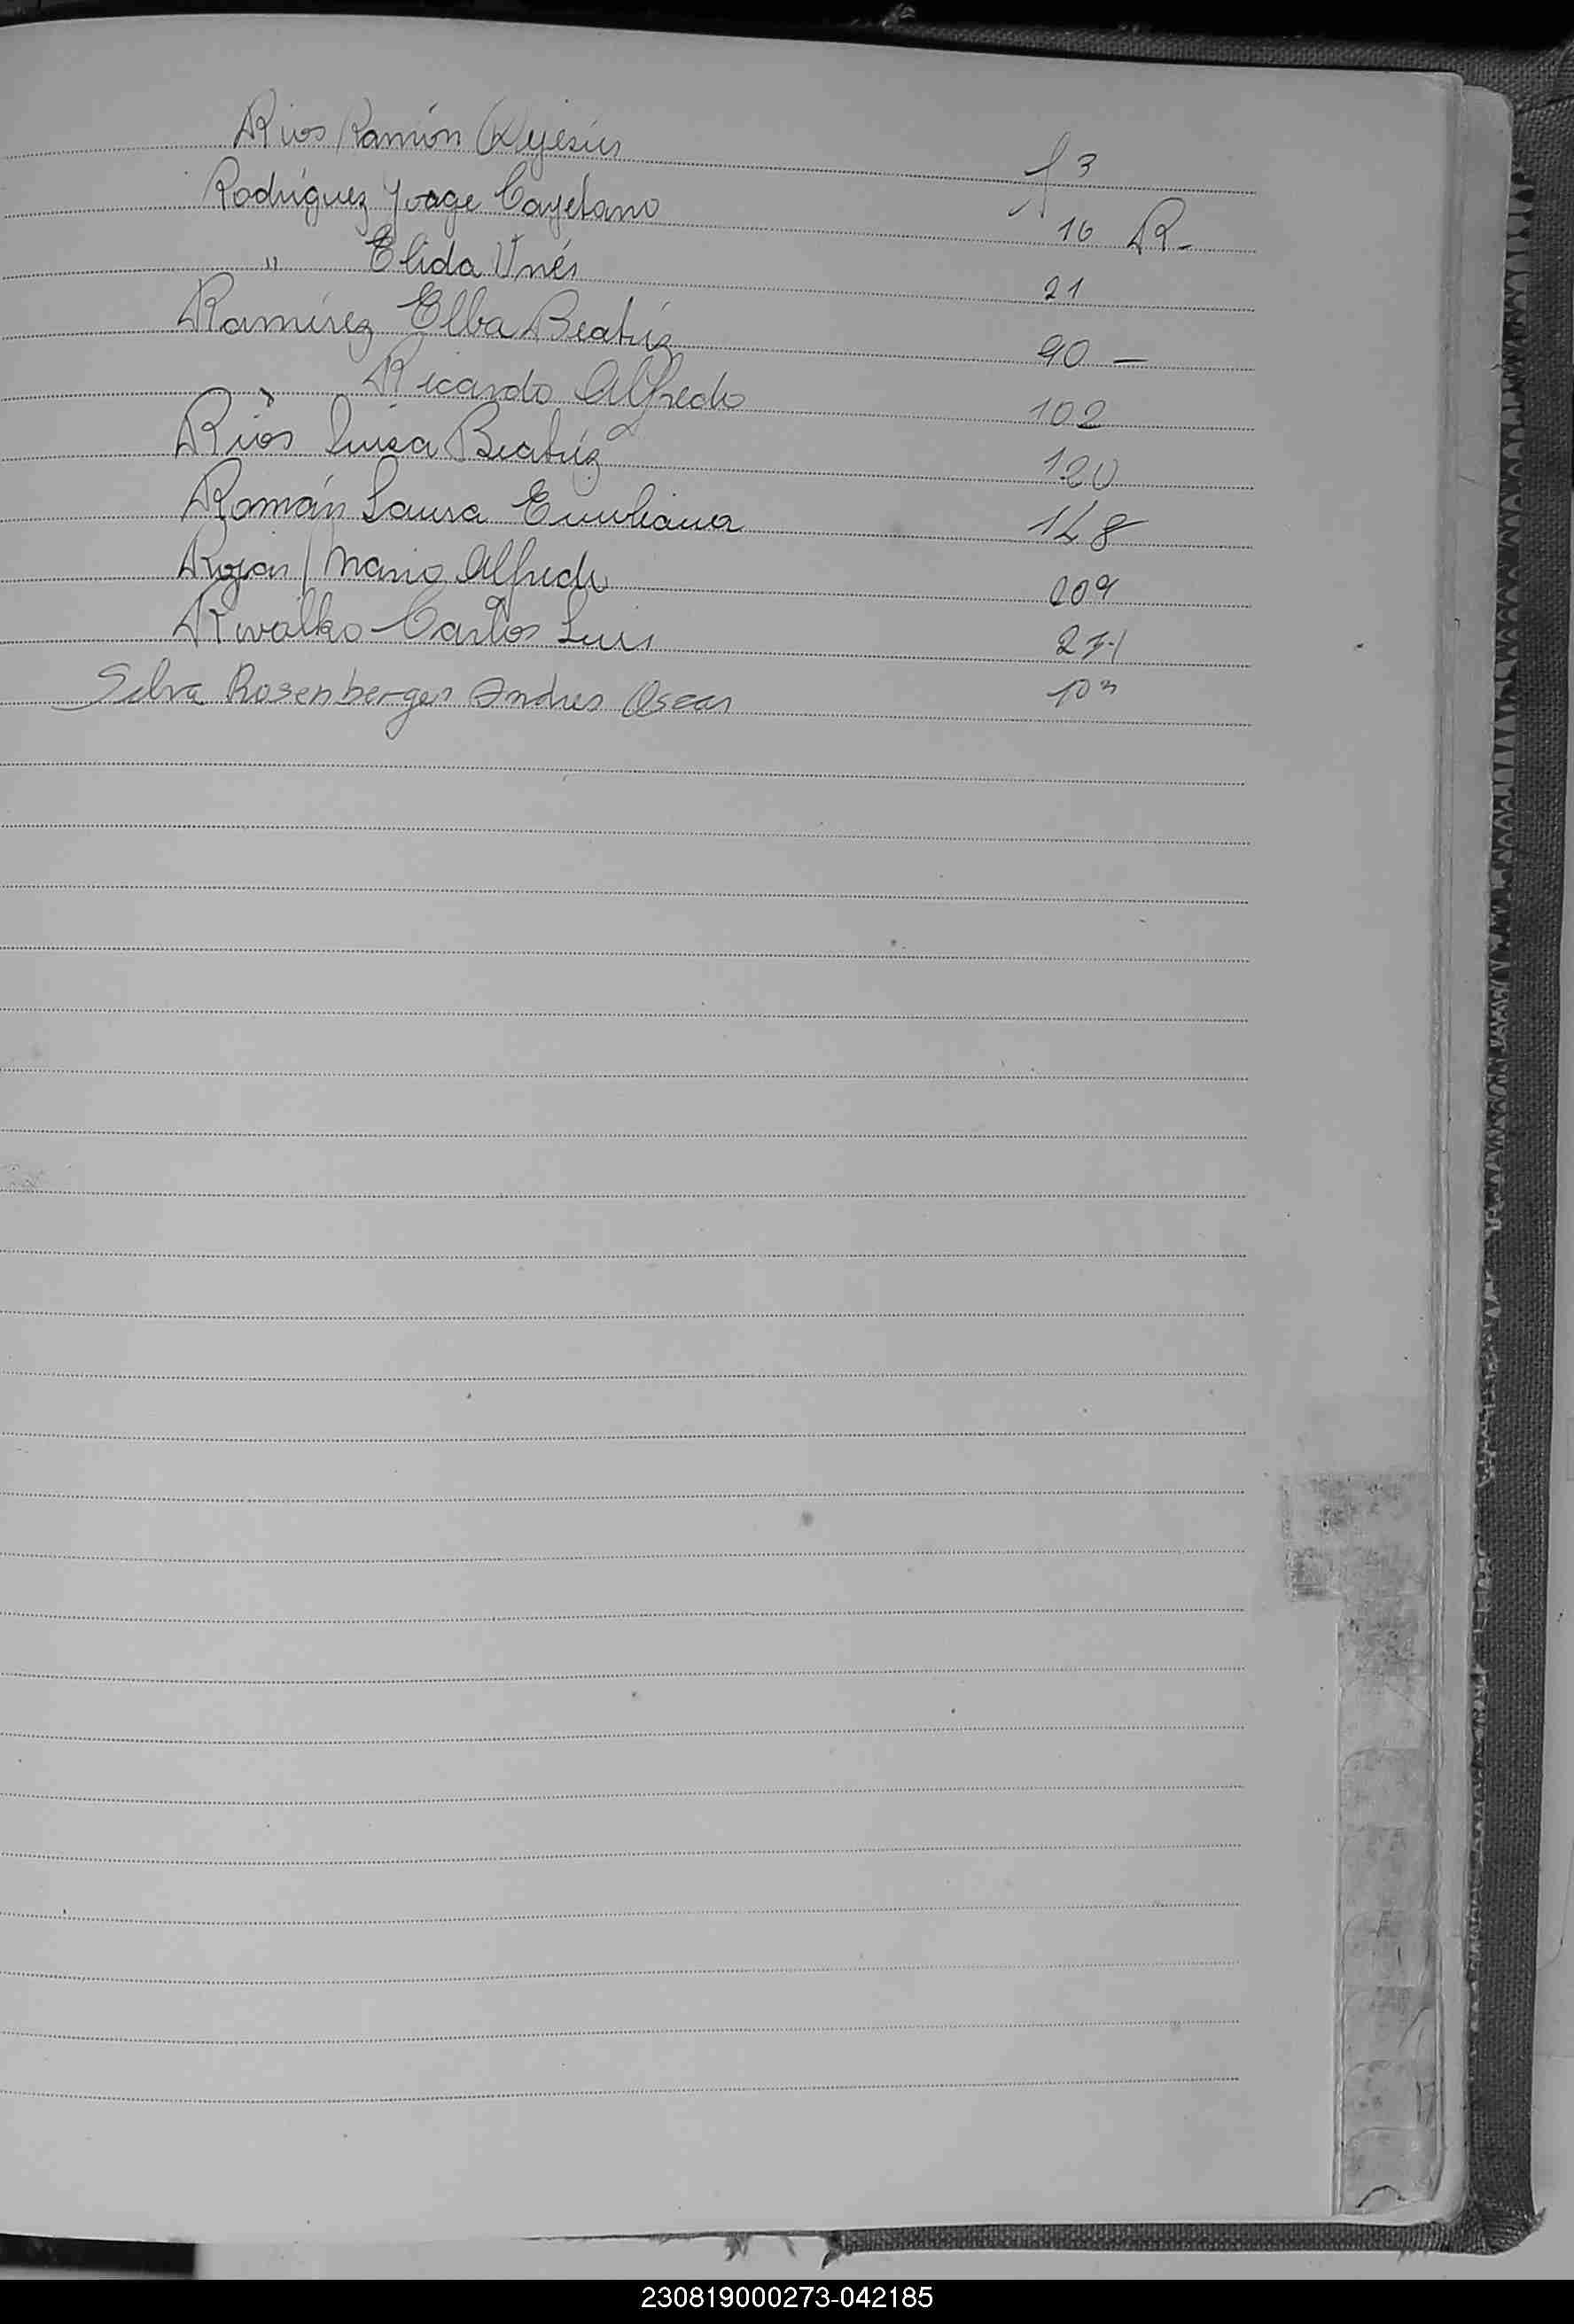 Rios Ramón Dejesús f 3
Rodríguez Jorge Cayetano 16 R-
" Elida Inés 21
Ramírez Elba Beatriz 90 —
" Ricardo Alfredo 102
Rios Luisa Beatriz 120
Román Laura Emiliana 148
Rojas Mario Alfredo 209
Carlos Luis 271
Silva Rosenberger Andres Oscar 103
230819000273-042185